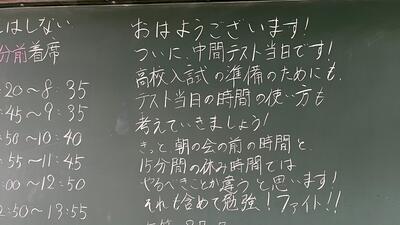 はしない
分前着席
20〜8:35
:45〜9:35
:50〜10:40
:55〜11:45
:00〜12:50
2:50〜13:55
おはようございます!
ついに、中間テスト当日です!
高校入試の準備のためにも、
テスト当日の時間の使い方も
考えていきましょう!
きっと、朝の会の前の時間と、
15分間の休み時間では
やるべきことが違うと思います!
それも含めて勉強!ファイト!!